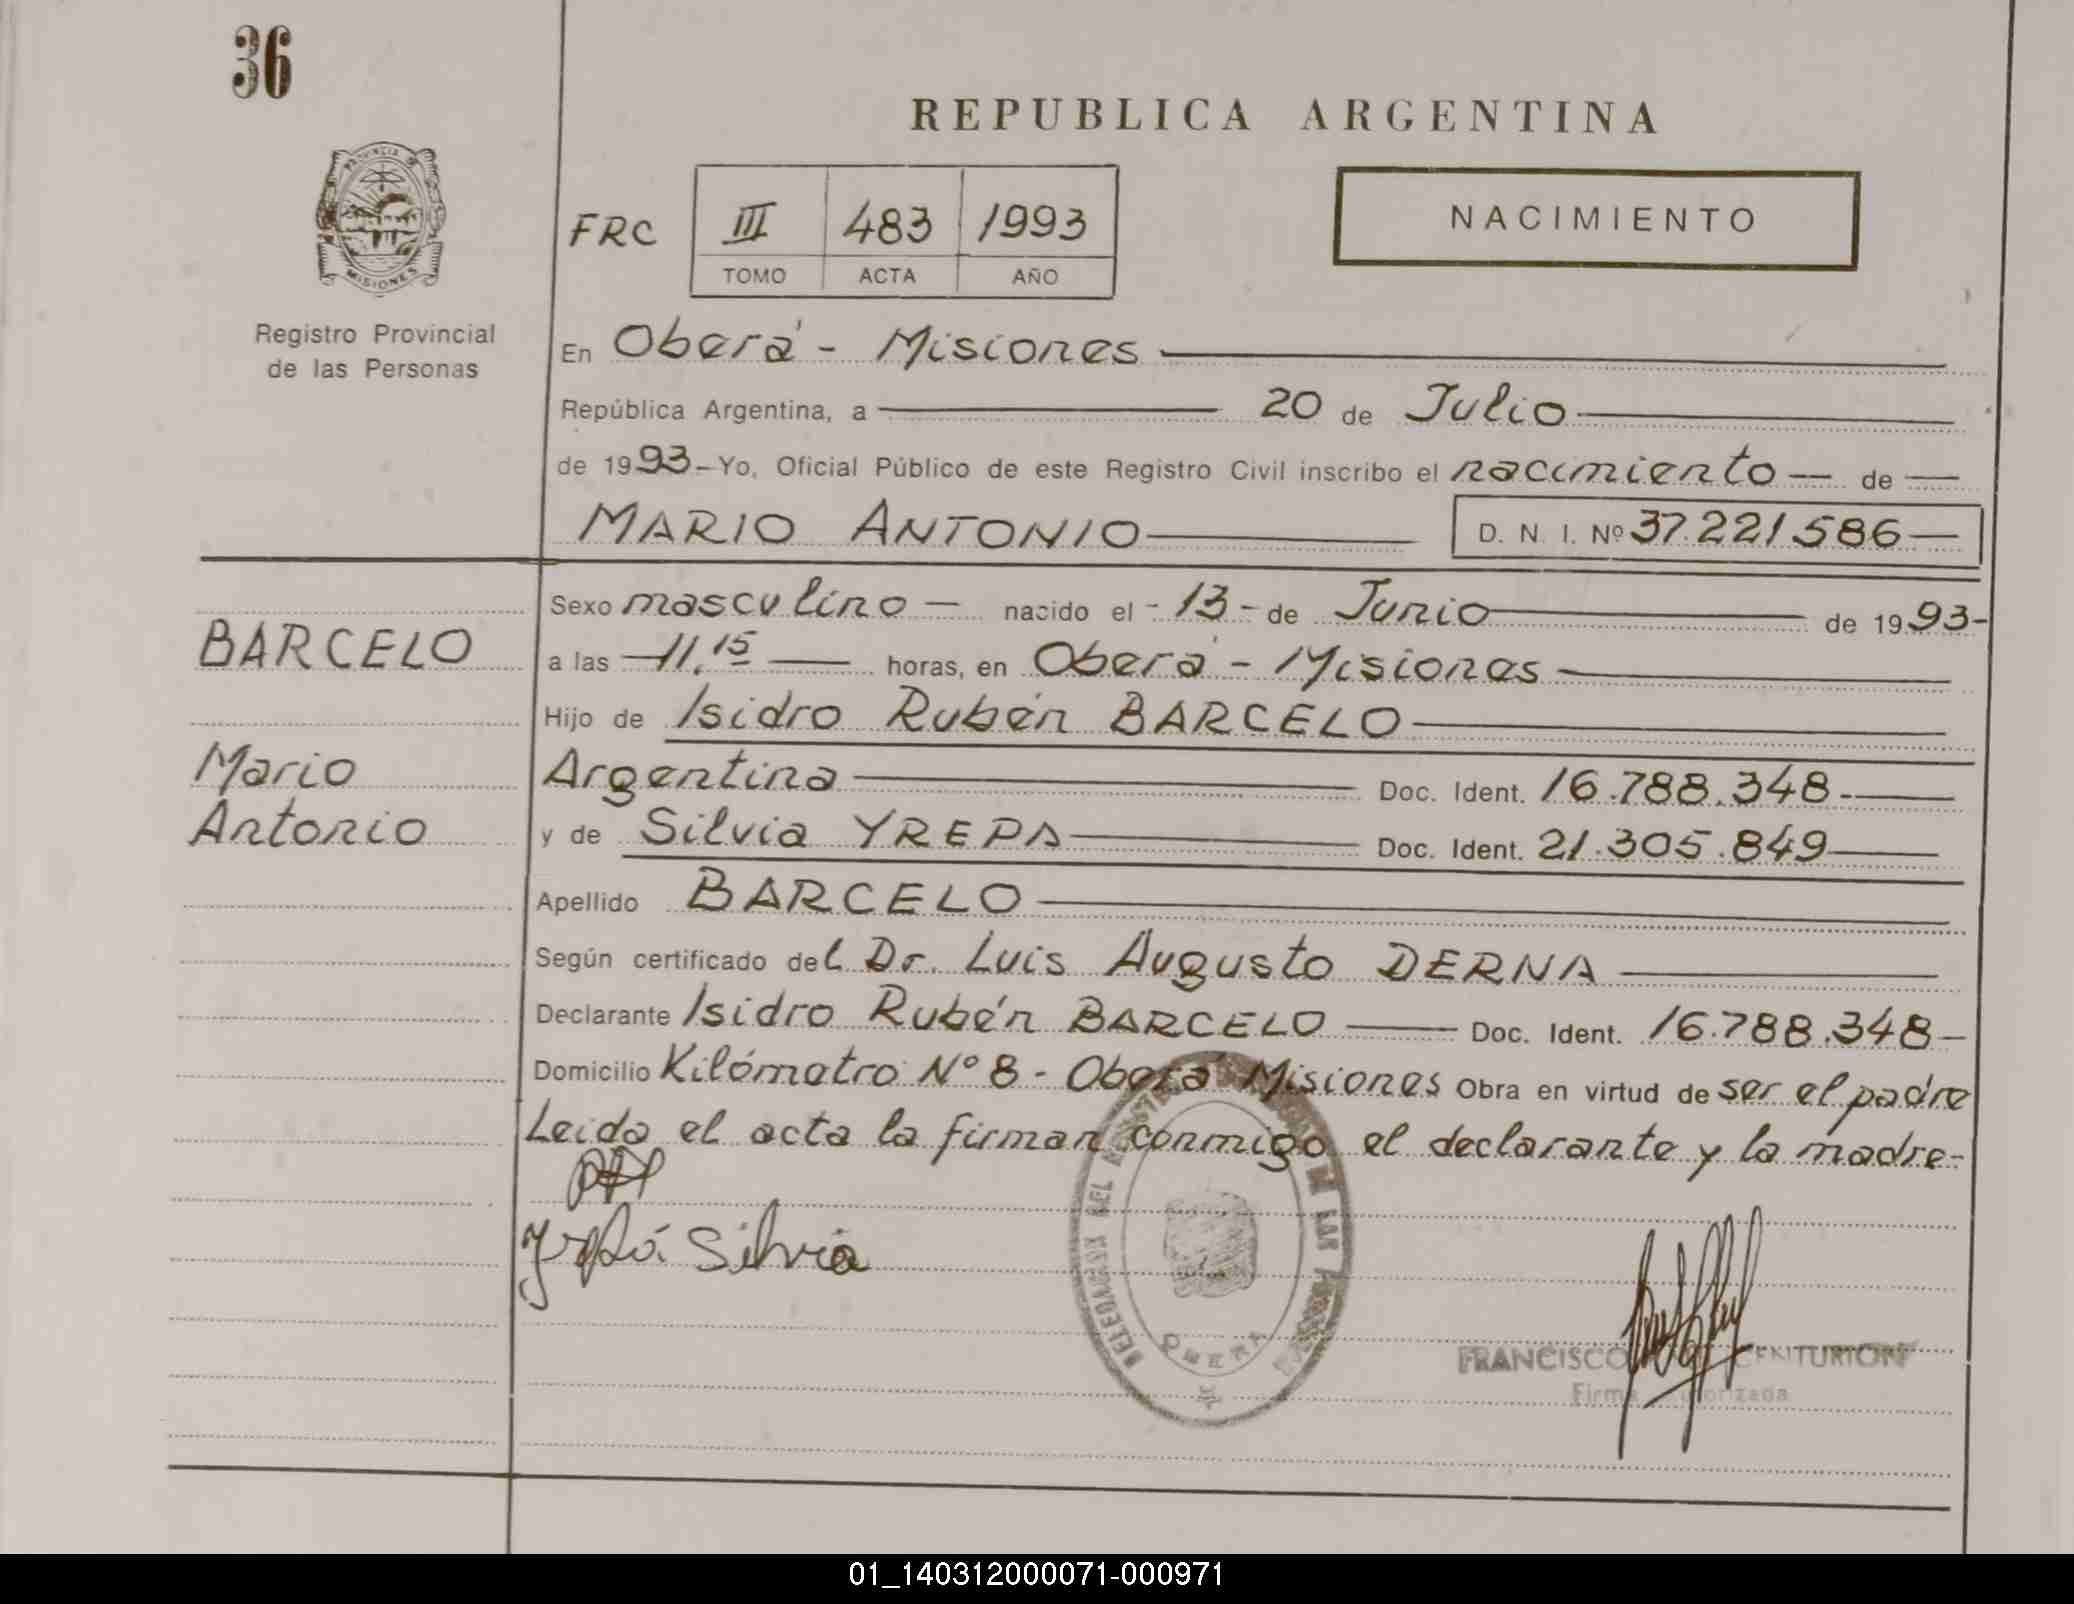 36
REPUBLICA ARGENTINA
PROVINCIA DE
MISIONES
Registro Provincial
de las Personas
FRC III 483 1993
TOMO ACTA AÑO
NACIMIENTO
En Oberá - Misiones
República Argentina, a 20 de Julio
de 1993 - Yo, Oficial Público de este Registro Civil inscribo el nacimiento de
MARIO ANTONIO D. N. I. Nº 37.221.586
BARCELO
Mario
Antonio
Sexo masculino nacido el - 13 - de Junio de 1993 -
a las 11,15 horas, en Oberá - Misiones
Hijo de Isidro Rubén BARCELO
Argentina Doc. Ident. 16.788.348
y de Silvia YREPA Doc. Ident. 21.305.849
Apellido BARCELO
Según certificado del Dr. Luis Augusto DERNA
Declarante Isidro Rubén BARCELO Doc. Ident. 16.788.348
Domicilio Kilómetro Nº 8 - Oberá Misiones Obra en virtud de ser el padre
Leida el acta la firman conmigo el declarante y la madre -
Silvia
DELEGACION DEL DE LAS
OBERA
FRANCISCO CENTURION
Firma
01_140312000071-000971